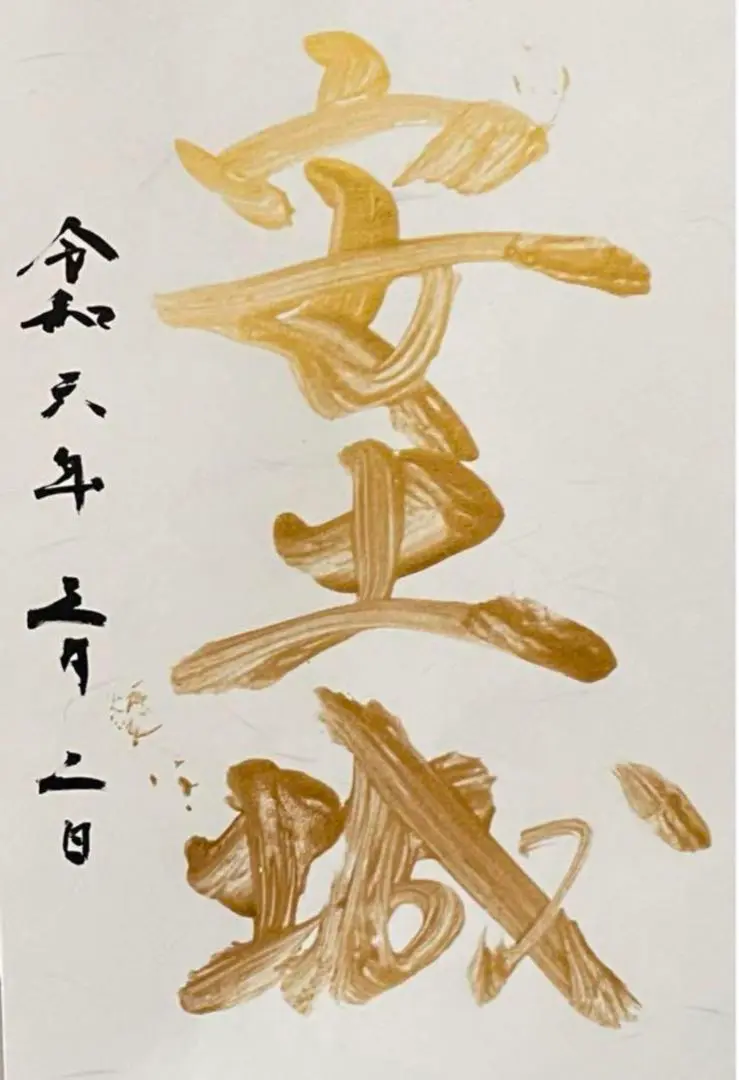 安土城
令和六年三月二日